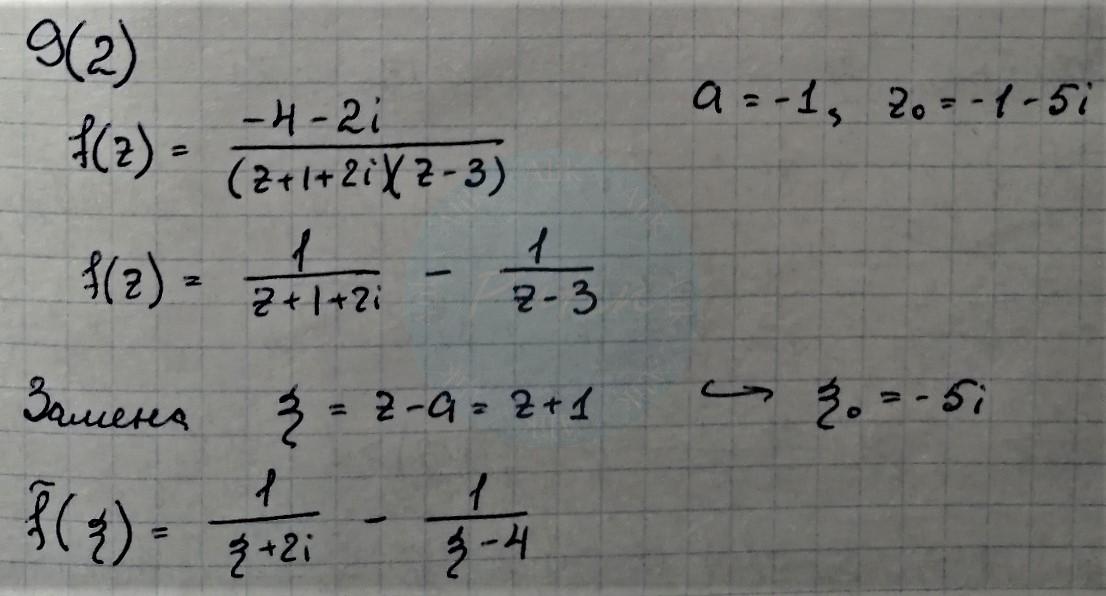 9(2)
f(z) = (-4-2i)/((z+1+2i)(z-3))   a = -1, z₀ = -1-5i
f(z) = 1/(z+1+2i) - 1/(z-3)
Замена ξ = z-a = z+1 ↪ ξ₀ = -5i
f̃(ξ) = 1/(ξ+2i) - 1/(ξ-4)